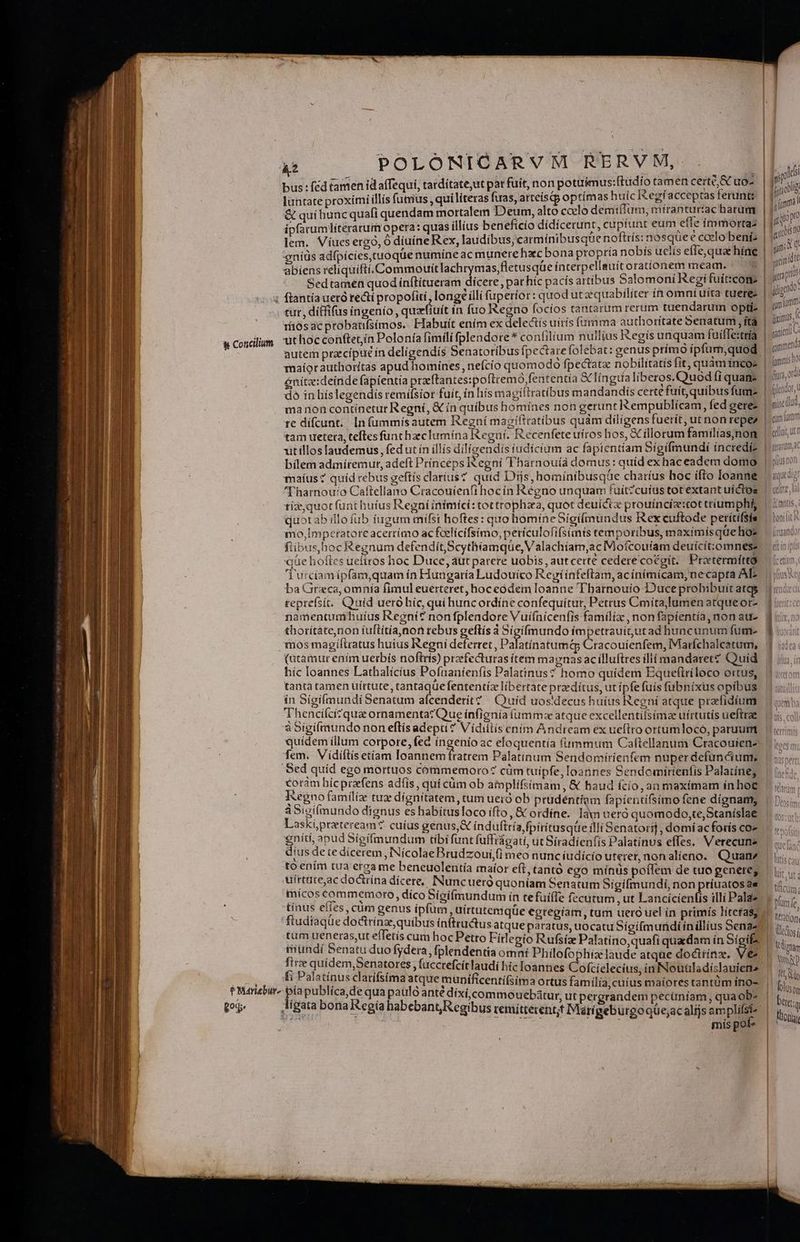 42 POLONICARVM RERVM,
bus: sed tamen id assequi, tarditate, ut par fuit, non potuimus: studio tamen certè, & uo-
luntate proximi illis sumus, qui literas suas, arteisq́; optimas huic Regi acceptas ferunt:
& qui hunc quasi quendam mortalem Deum, alto cœlo demissum, mirantur: ac harum
ipsarum literarum opera: quas illius beneficio didicerunt, cupiunt eum esse immorta-
lem. Viues ergò, ô diuine Rex, laudibus, carminibusqúe nostris: nosqúe è cœlo beni-
gniùs adspicies, tuoqúe numine ac munere hæc bona propria nobis uelis esse, quæ hinc
abiens reliquisti. Commouit lachrymas, fletusqúe interpellauit orationem meam.
Sed tamen quod institueram dicere, par hic pacis artibus Salomoni Regi fuit: con-
stantia uerò recti propositi, longè illi superior: quod ut æquabiliter in omni uita tuere-
tur, diffisus ingenio, quæsiuit in suo Regno socios tantarum rerum tuendarum opti-
mos ac probatissimos. Habuit enim ex delectis uiris summa authoritate Senatum, ita
* Concilium ut hoc constet, in Polonia simili splendore * consilium nullius Regis unquam fuisse: tria
autem præcipuè in deligendis Senatoribus spectare solebat: genus primò ipsum, quod
maior authoritas apud homines, nescio quomodo spectatæ nobilitatis sit, quàm inco-
gnitæ: deinde sapientia præstantes: postremò, sententia & lingua liberos. Quòd si quan-
do in his legendis remissior fuit, in his magistratibus mandandis certè fuit, quibus sum-
ma non continetur Regni, & in quibus homines non gerunt Rempublicam, sed gere-
re discunt. In summis autem Regni magistratibus quàm diligens fuerit, ut non repe-
tam uetera, testes sunt hæc lumina Regni. Recensete uiros hos, & illorum familias, non
ut illos laudemus, sed ut in illis diligendis iudicium ac sapientiam Sigismundi incredi-
bilem admiremur, adest Princeps Regni Tharnouia domus: quid ex hac eadem domo
maius? quid rebus gestis clarius? quid Dijs, hominibusqúe charius hoc isto Ioanne
Tharnouio Castellano Cracouiensi hoc in Regno unquam fuit? cuius tot extant uicto-
riæ, quot sunt huius Regni inimici: tot trophæa, quot deuictæ prouinciæ: tot triumphi,
quot ab illo sub iugum missi hostes: quo homine Sigismundus Rex custode peritissi-
mo, Imperatore acerrimo ac fœlicissimo, periculosissimis temporibus, maximisqúe ho-
stibus, hoc Regnum defendit, Scythiamqúe, Valachiam, ac Moscouiam deuicit: omnes-
qúe hostes uestros hoc Duce, aut parere uobis, aut certè cedere coëgit. Prætermitto
Turciam ipsam, quam in Hungaria Ludouico Regi infestam, ac inimicam, ne capta Al-
ba Græca, omnia simul euerteret, hoc eodem Ioanne Tharnouio Duce prohibuit atq;
repressit. Quid uerò hic, qui hunc ordine consequitur, Petrus Cmita, lumen atque or-
namentum huius Regni? non splendore Vuisnicensis familiæ, non sapientia, non au-
thoritate, non iustitia, non rebus gestis à Sigismundo impetrauit, ut ad hunc unum sum-
mos magistratus huius Regni deferret, Palatinatumq́; Cracouiensem, Marschalcatum,
(utamur enim uerbis nostris) præfecturas item magnas ac illustres illi mandaret? Quid
hic Ioannes Lathalicius Posnaniensis Palatinus? homo quidem Equestri loco ortus,
tanta tamen uirtute, tantaqúe sententiæ libertate præditus, ut ipse suis subnixus opibus
in Sigismundi Senatum ascenderit? Quid uos decus huius Regni atque præsidium
Thencisci? quæ ornamenta? Quæ insignia summæ atque excellentissimæ uirtutis uestræ
à Sigismundo non estis adepti? Vidistis enim Andream ex uestro ortum loco, paruum
quidem illum corpore, sed ingenio ac eloquentia summum Castellanum Cracouien-
sem. Vidistis etiam Ioannem fratrem Palatinum Sendomiriensem nuper defunctum.
Sed quid ego mortuos commemoro? cùm tu ipse, Ioannes Sendomiriensis Palatine,
coràm hic præsens adsis, qui cùm ob amplissimam, & haud scio, an maximam in hoc
Regno familiæ tuæ dignitatem, tum uerò ob prudentiam sapientissimo sene dignam,
à Sigismundo dignus es habitus loco isto, & ordine. Iam uerò quomodo, te, Stanislae
Laski, præteream? cuius genus, & industria, spiritusqúe illi Senatorij, domi ac foris co-
gniti, apud Sigismundum tibi sunt suffragati, ut Siradiensis Palatinus esses. Verecun-
dius de te dicerem, Nicolae Brudzoui, si meo nunc iudicio uterer, non alieno. Quan-
tò enim tua erga me beneuolentia maior est, tantò ego minùs possem de tuo genere,
uirtute, ac doctrina dicere. Nunc uerò quoniam Senatum Sigismundi, non priuatos a-
micos commemoro, dico Sigismundum in te fuisse secutum, ut Lanciciensis illi Pala-
tinus esses, cùm genus ipsum, uirtutemqúe egregiam, tum uerò uel in primis literas,
studiaqúe doctrinæ, quibus instructus atque paratus, uocatu Sigismundi in illius Sena-
tum ueneras, ut essetis cum hoc Petro Firlegio Russiæ Palatino, quasi quædam in Sigis-
mundi Senatu duo sydera, splendentia omni Philosophiæ laude atque doctrinæ. Ve-
stræ quidem, Senatores, succrescit laudi hic Ioannes Coscielecius, in Nouuladislauien-
si Palatinus clarissima atque munificentissima ortus familia, cuius maiores tantùm ino-
† Mariebur- pia publica, de qua paulò antè dixi, commouebātur, ut pergrandem pecuniam, qua ob-
goq́;. ligata bona Regia habebant, Regibus remitterent, † Marigeburgoqúe, ac alijs amplissi-
mis pos-